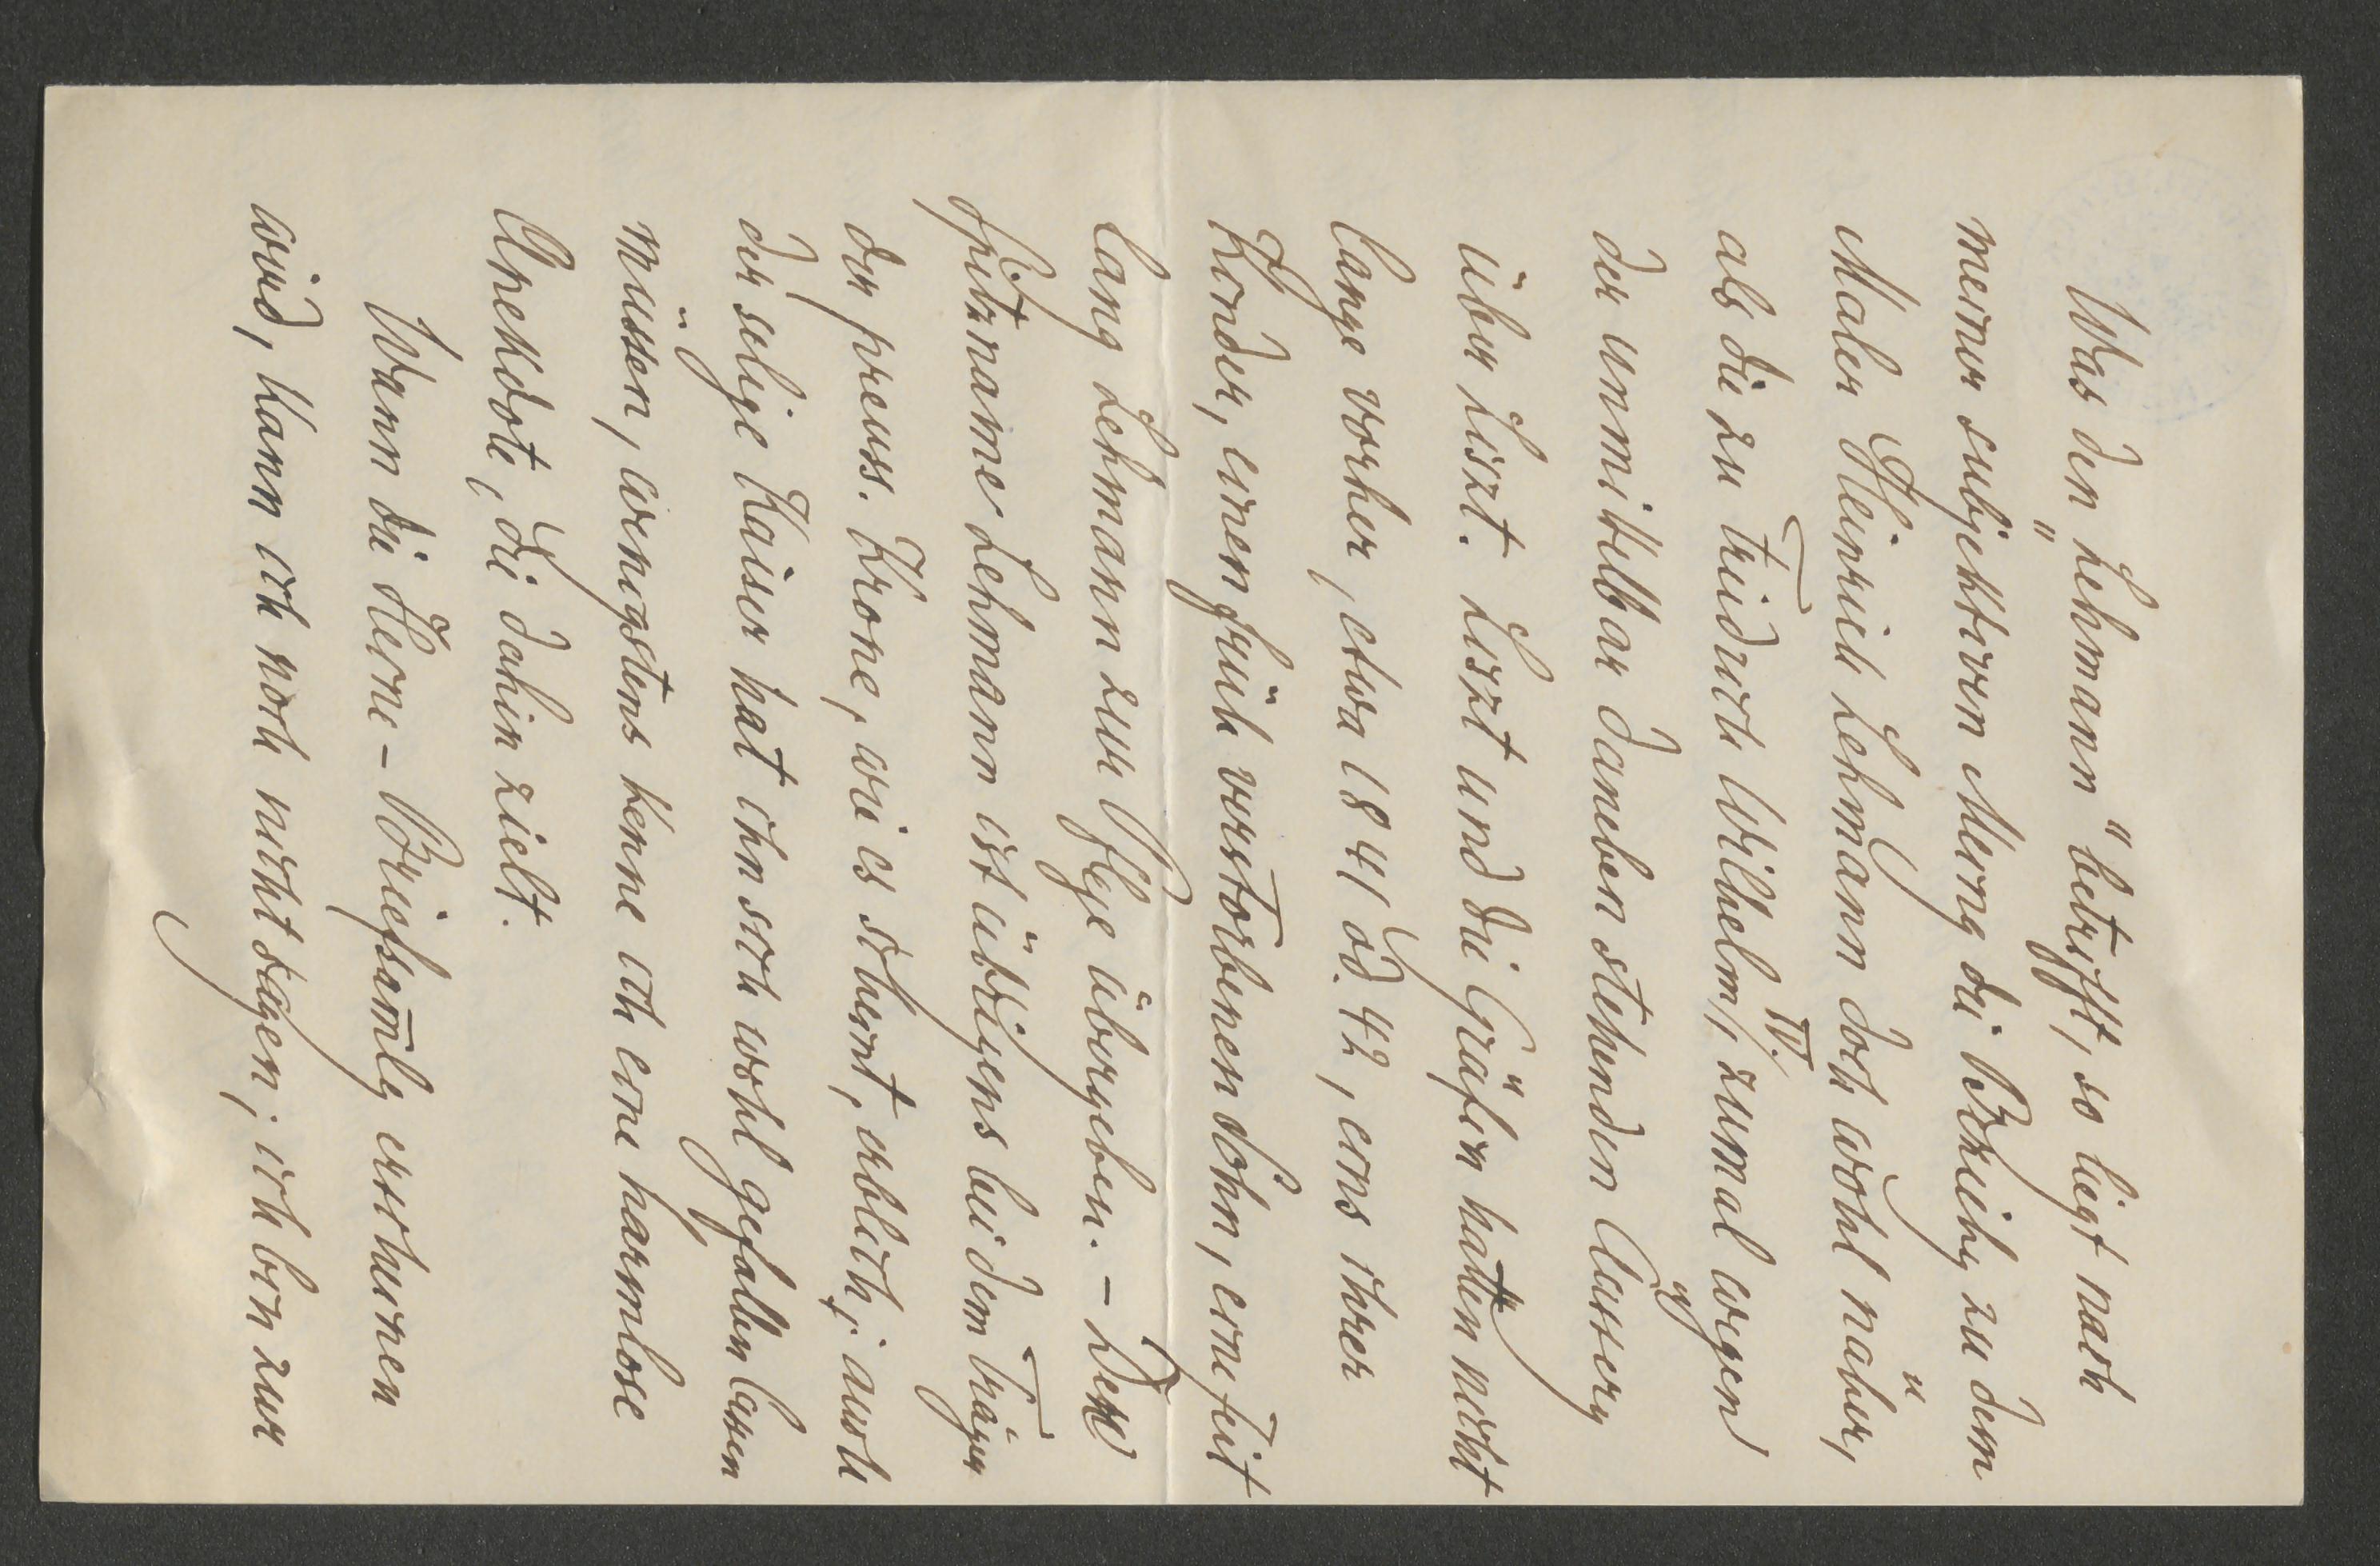 Was den „Lehmann" betrifft, so liegt nach
meiner subjektiven Meing die Beziehg zu dem
Maler Heinrich Lehmann doch wohl näher,
als die zu Friedrich Wilhelm IV., zumal wegen
der unmittelbar daneben stehenden Äusserg
über Liszt. Liszt und die Gräfin hatten nicht
lange vorher, etwa 1841 od. 42, eins ihrer
Kinder, einen früh verstorbenen Sohn, eine Zeit
lang Lehmann zur Pflege übergeben. – Der
Spitzname Lehmann ist übrigens bei dem Träger
der preuss. Krone, wie es scheint, erblich; auch
der selige Kaiser hat ihn sich wohl gefallen lassen
müssen, wenigstens kenne ich eine harmlose
Anekdote, die dahin zielt.
Wann die Heine-Briefsam̅lg erscheinen
wird, kann ich noch nicht sagen; ich bin zur